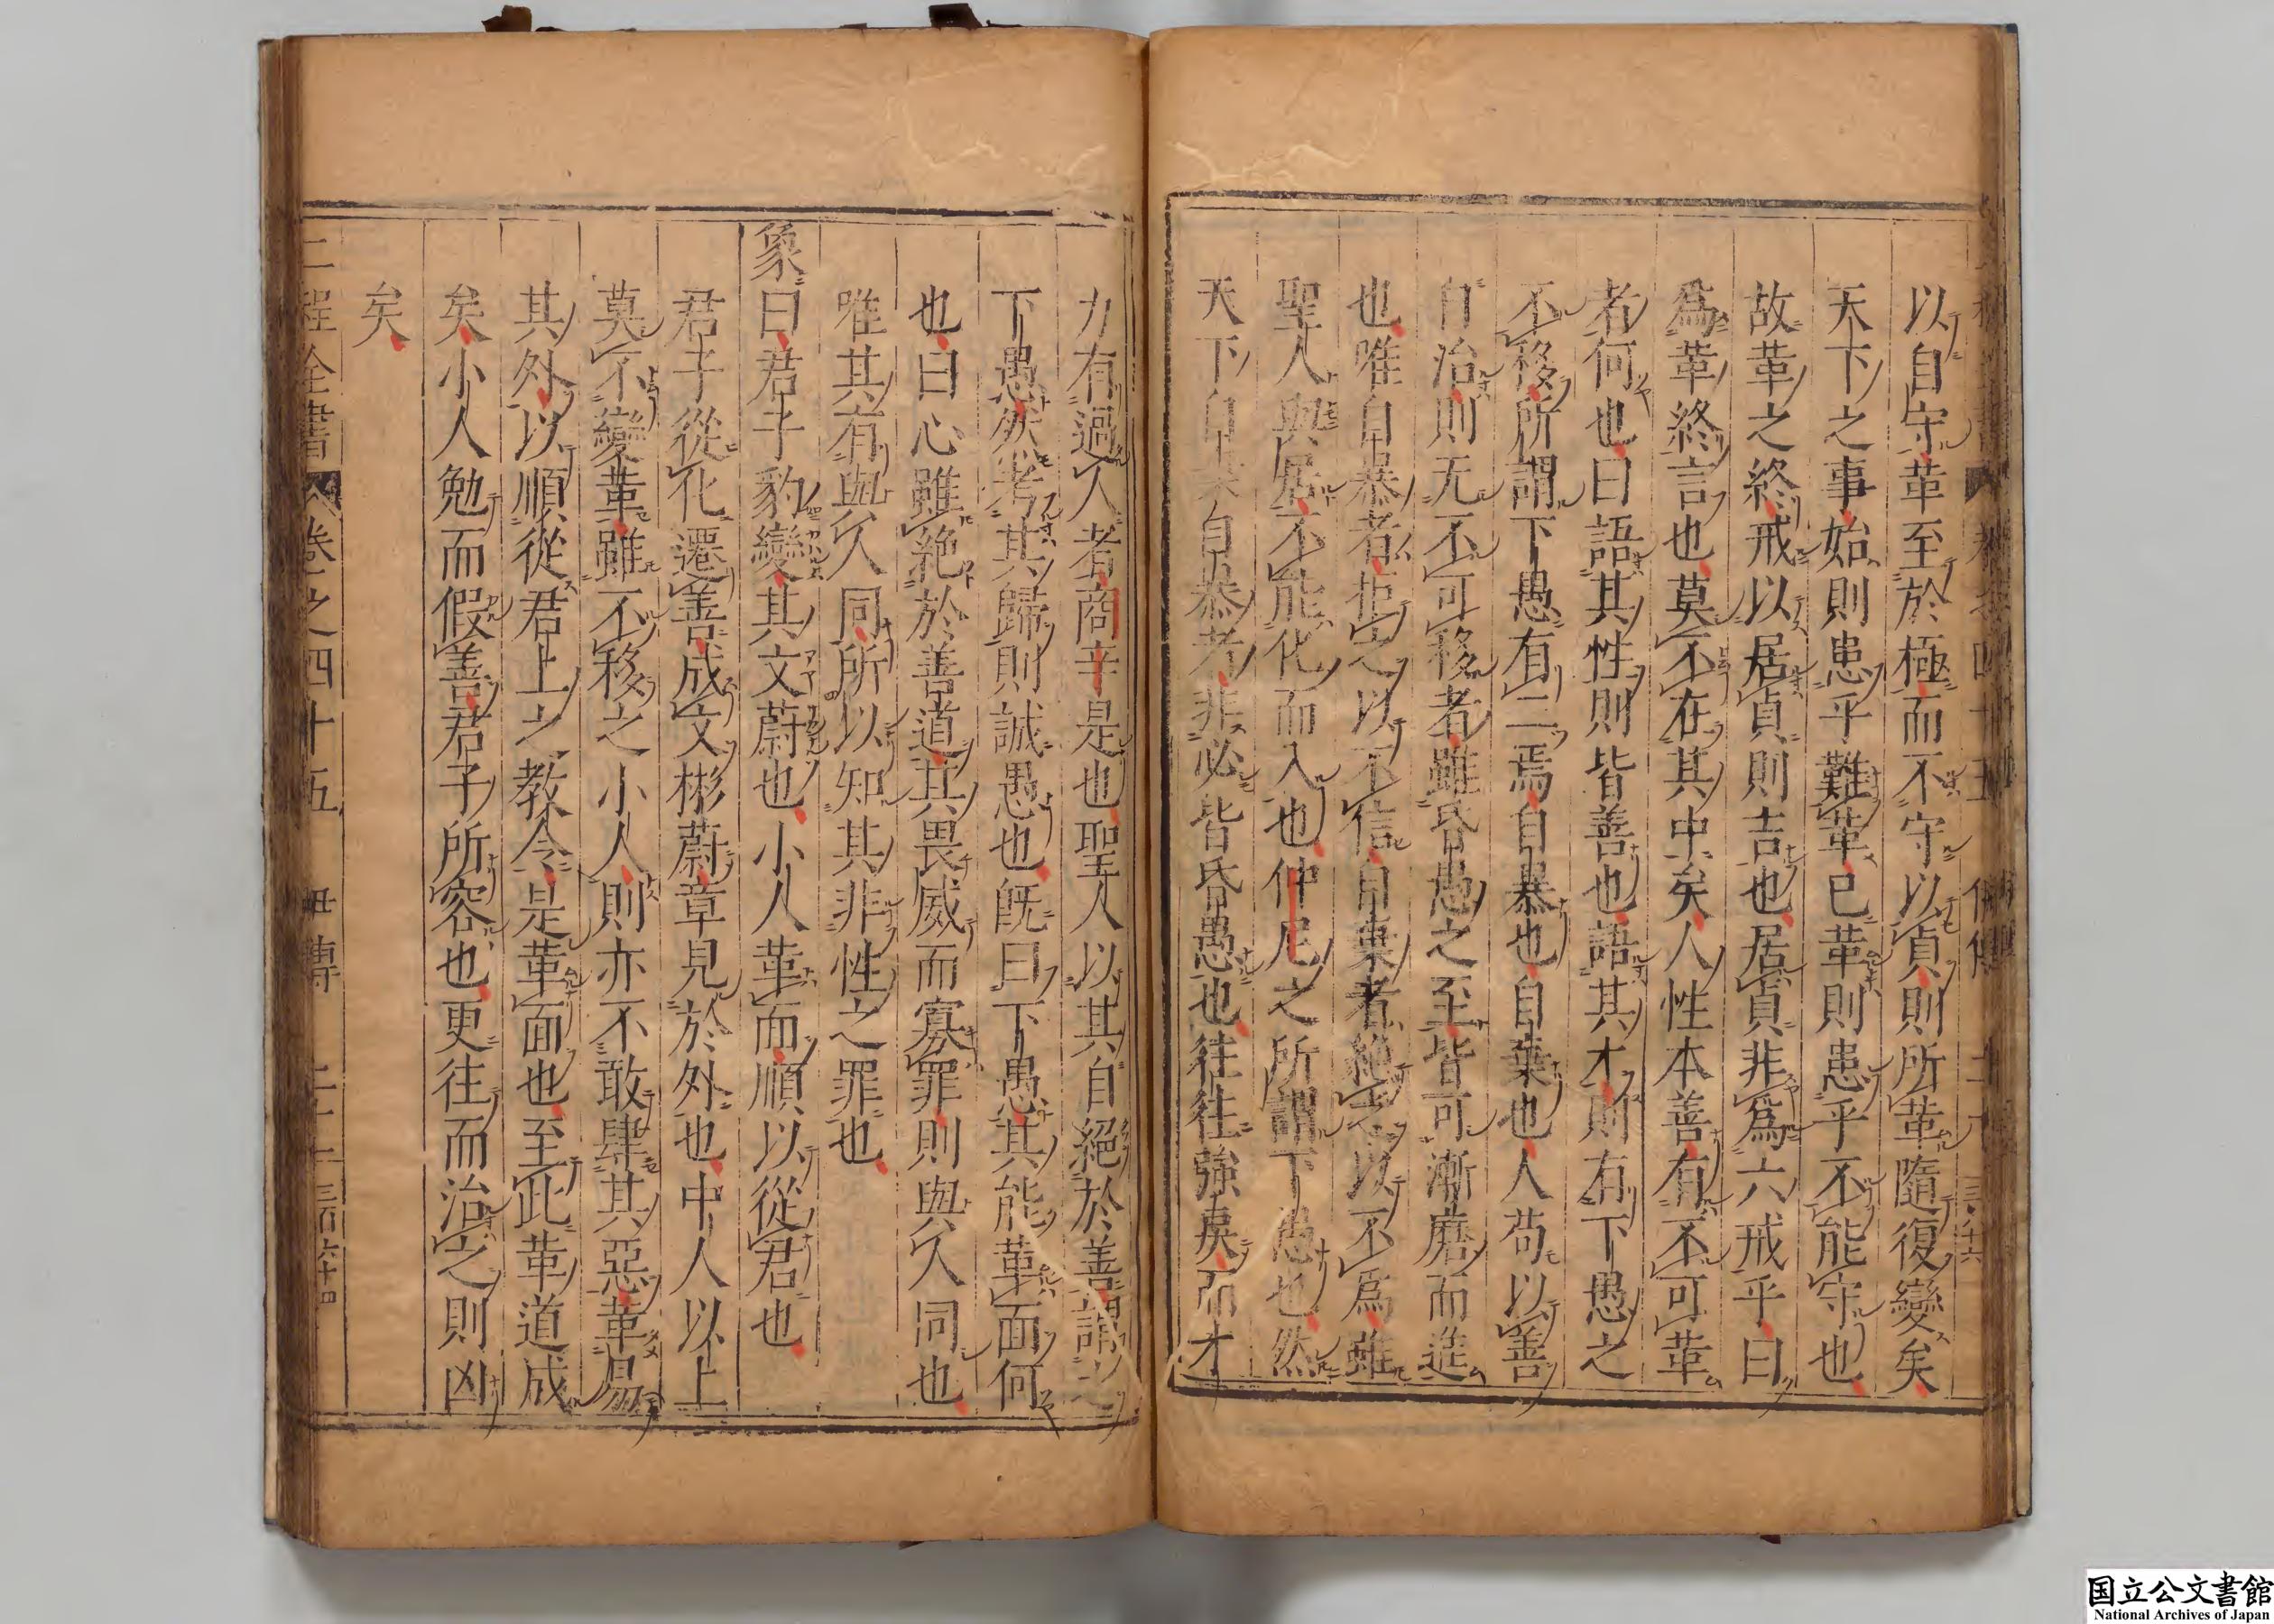 以自守革至於極而不守以貞則所革隨復變矣
天下之事始則患乎難革已革則患乎不能守也
故革之終戒以居貞則吉也居貞非爲六戒乎曰
爲革終言也莫不在其中矣人性本善有不可革
者何也曰語其性則皆善也語其才則有下愚之
不移所謂下愚有二焉自暴也自棄也人苟以善
自治則无不可移者雖昏愚之至皆可漸磨而進
也唯自暴者拒之以不信自棄者絕之以不爲雖
聖人與居不能化而入也仲尼之所謂下愚也然
天下自棄自暴者非必皆昏愚也往往強戾而才
力有過人者商辛是也聖人以其自絕於善謂之
下愚然考其歸則誠愚也既曰下愚其能革面何
也曰心雖絕於善道其畏威而寡罪則與人同也
唯其有與人同所以知其非性之罪也
象曰君子豹變其文蔚也小人革而順以從君也
君子從化遷善成文彬蔚章見於外也中人以上
莫不變革雖不移之小人則亦不敢肆其惡革易
其外以順從君上之教令是革面也至此革道成
矣小人勉而假善君子所容也更往而治之則凶
矣
二程全書 卷之四十五 毌傳 二十二 三百六十四
国立公文書館
National Archives of Japan